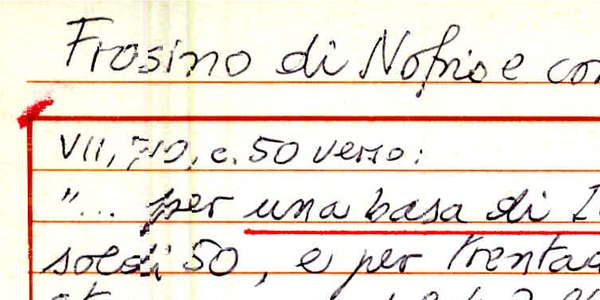 Frosino di Nofrio e
VII, 710, c. 50 verso:
"... per una basa di
soldi 50, e per